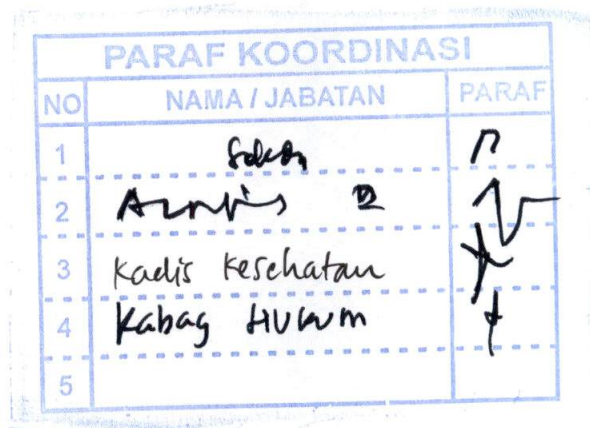 PARAF KOORDINASI
NO NAMA / JABATAN PARAF
1 Sekda
2
3 Kadis Kesehatan
4 Kabag Hukum
5